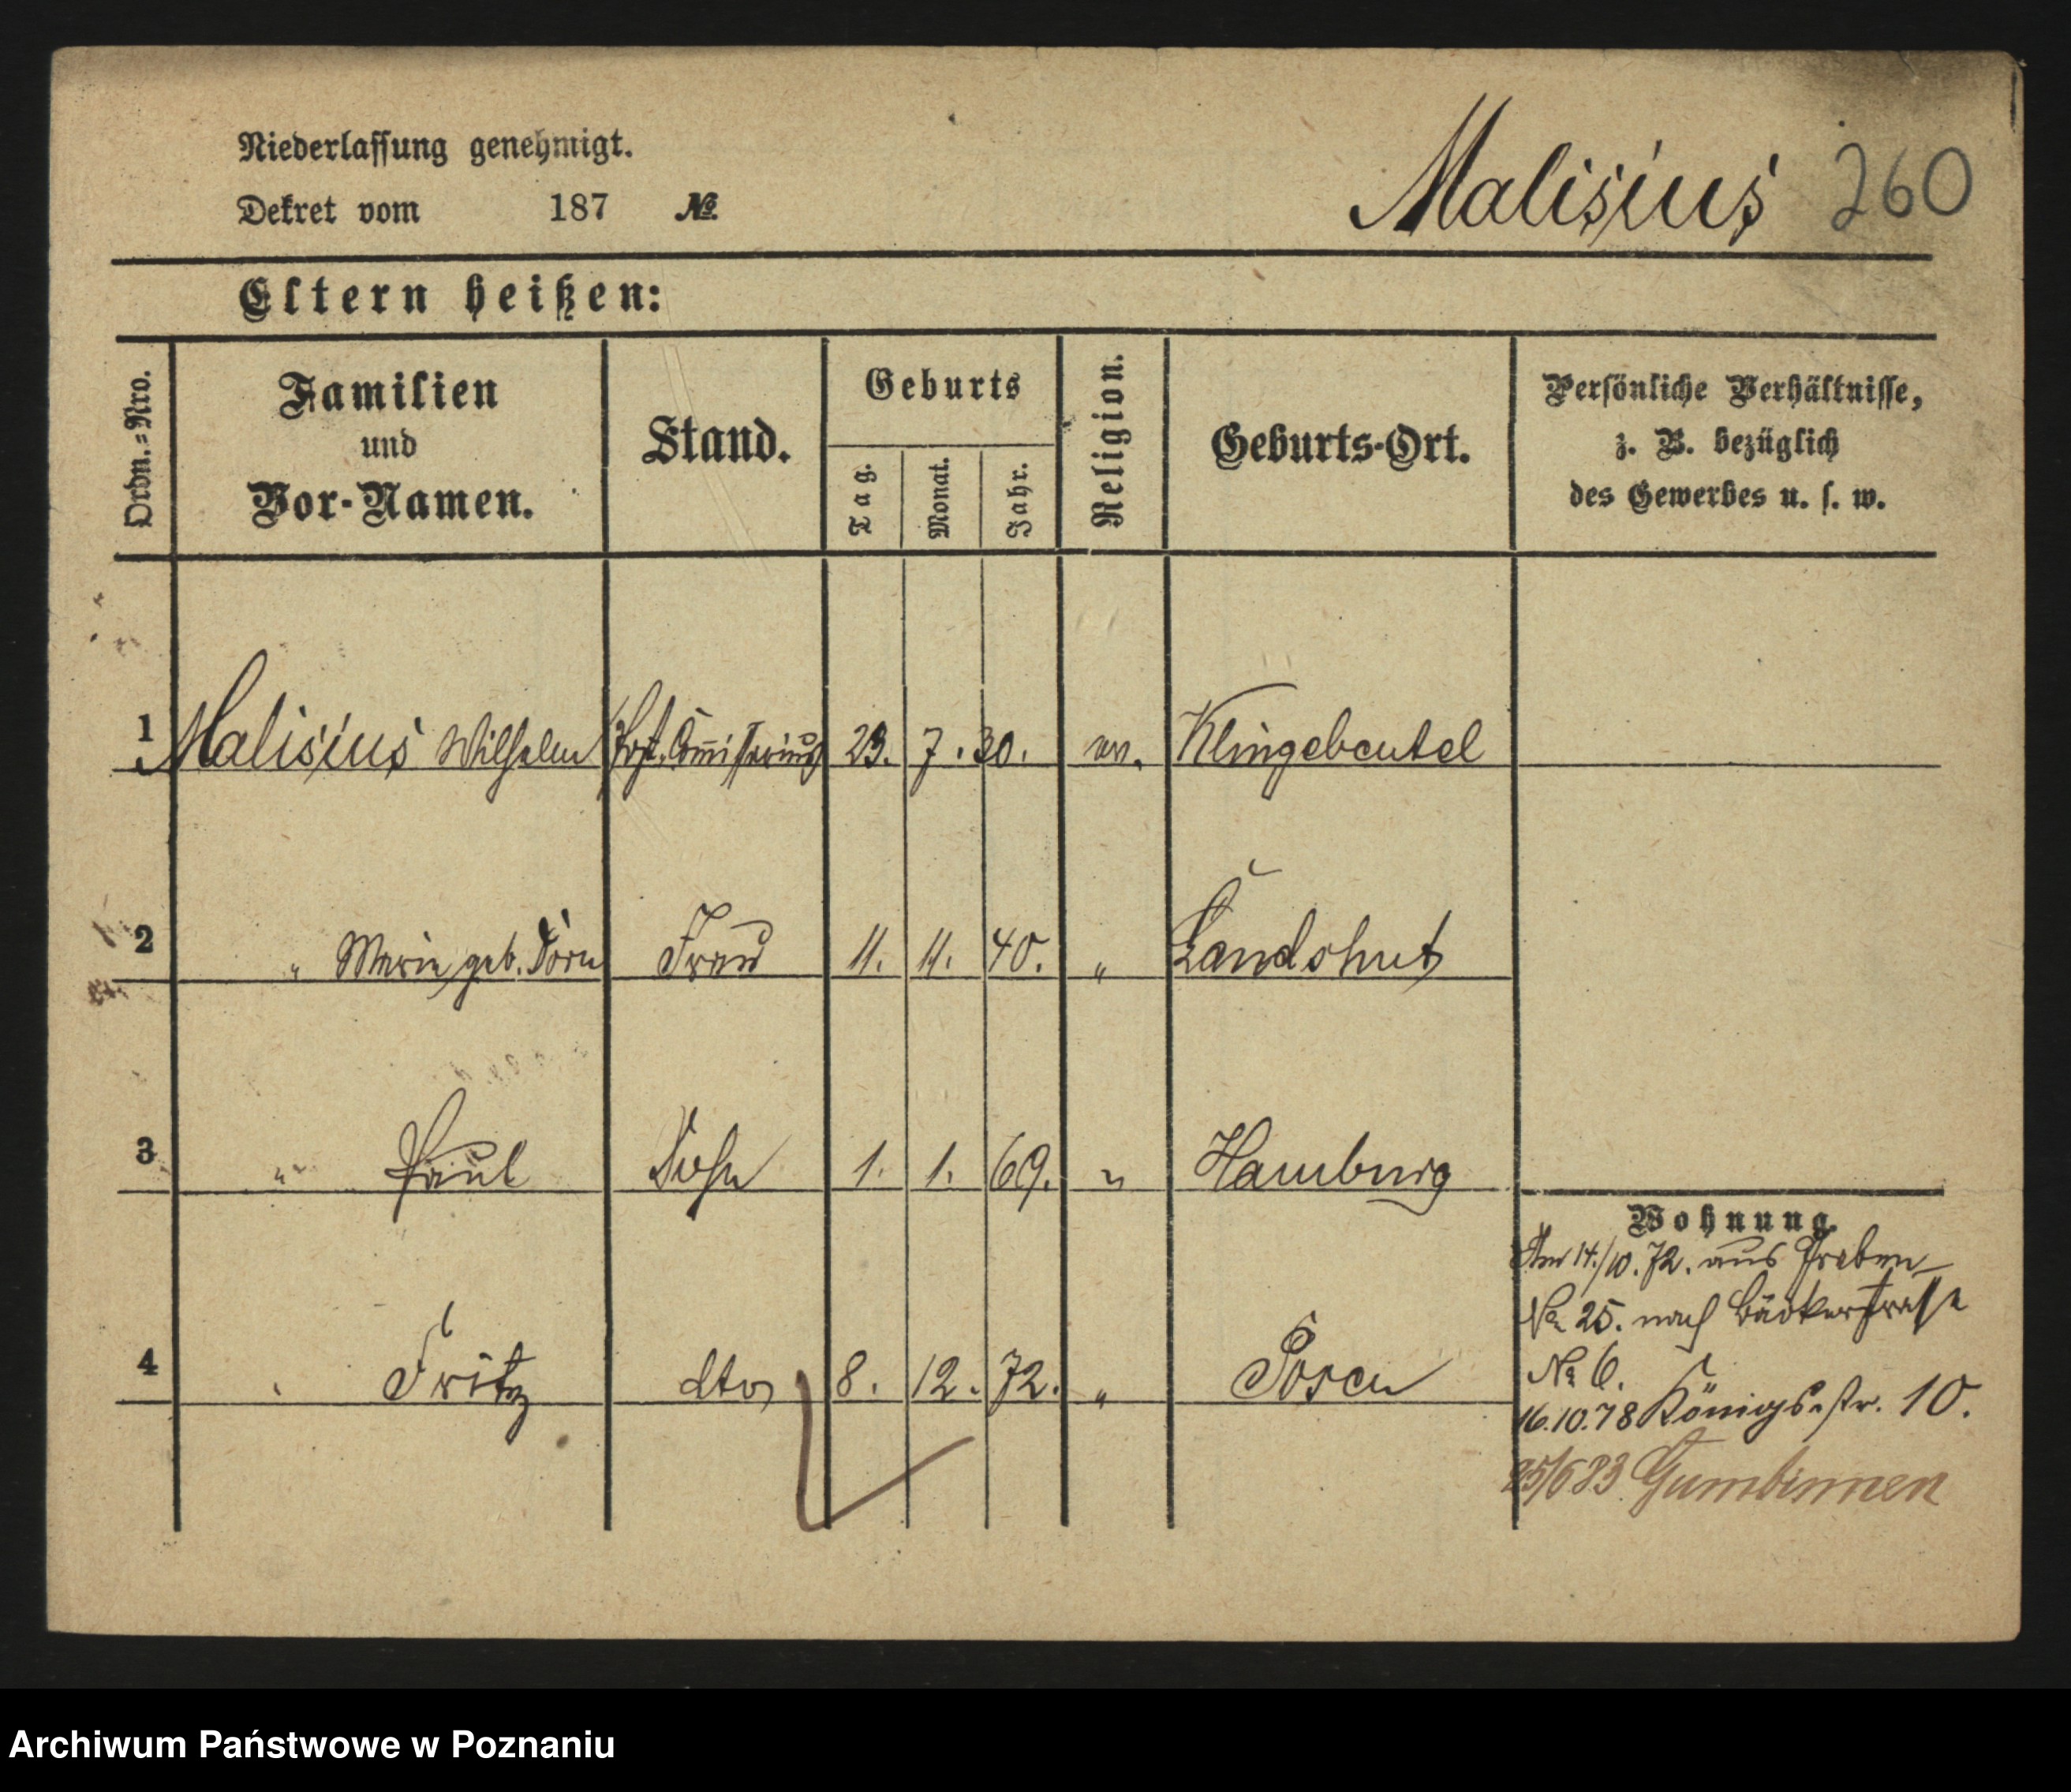 Niederlassung genehmigt.
Dekret vom 187 №
Malisius 260
Eltern heißen:
Ordn.=Nro.
Familien
und
Vor-Namen.
Stand.
Geburts
Tag.
Monat.
Jahr.
Religion.
Geburts-Ort.
Persönliche Verhältnisse,
z. B. bezüglich
des Gewerbes u. s. w.
1 Malisius Wilhelm Post. Com̄issarius 23. 7. 30. ev. Klingebeutel
2 " Marie geb. Dorn Frau 11. 11. 40. " Landshut
3 " Paul Sohn 1. 1. 69. " Hamburg
Wohnung.
Am 14./10. 72. aus Graben
No 25. nach Bäckerstraße
No 6.
4 " Fritz dto 8. 12. 72. " Posen
16.10.78 Königs.str. 10.
25/6 83 Gumbinnen
Archiwum Państwowe w Poznaniu